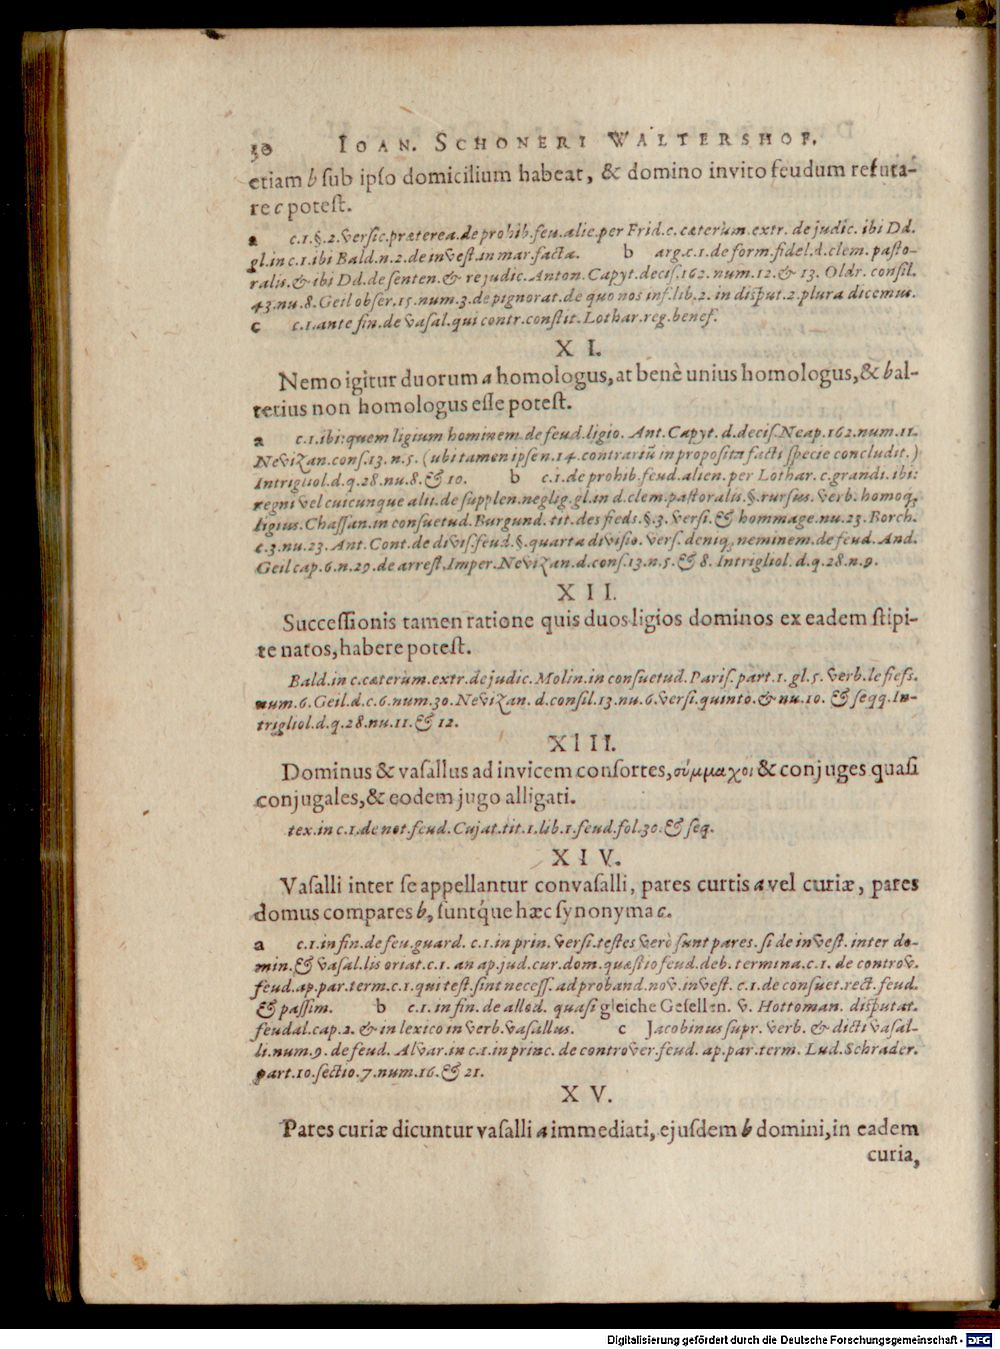 30 IOAN. SCHONERI WALTERSHOF.
etiam b ſub ipſo domicilium habeat, & domino invito feudum refuta-
re c poteſt.
a c.1.§.2.verſic.præterea.de prohib.feu.alie.per Frid.c.cæterùm.extr. de judic. ibi Dd.
gl.in c.1.ibi Bald.n.2.de inveſt.in mar.facta. b arg.c.1.de form.fidel.d.clem. paſto-
ralis.& ibi Dd.de ſenten.& re judic. Anton. Capyt. deciſ.162. num.12.& 13. Oldr. conſil.
43.nu.8. Geil obſer.15.num.3.de pignorat.de quo nos inf.lib.2. in diſput.2.plura dicemus.
c c.1.ante fin.de vaſal.qui contr.conſtit.Lothar.reg.benef.
XI.
Nemo igitur duorum a homologus, at benè unius homologus, & b al-
terius non homologus eſſe poteſt.
a c.1.ibi:quem ligium hominem de feud.ligio. Ant. Capyt. d.deciſ.Neap.162.num.11.
Nevizan.conſ.13.n.5. (ubi tamen ipſe n.14.contrariũ in propoſita facti ſpecie concludit.)
Intrigliol.d.q.28.nu.8.& 10. b c.1.de prohib.feud.alien.per Lothar.c.grandi.ibi:
regni vel cuicunque alii.de ſupplen.neglig.gl.in d.clem.paſtoralis.§.rurſus. verb.homoq;
ligius.Chaſſan.in conſuetud.Burgund.tit.des fieds.§.3. verſi.& hommage.nu.23. Borch.
c.3.nu.23. Ant. Cont.de diviſ.feud.§.quarta diviſio. verſ.deniq; neminem.de feud. And.
Geil cap.6.n.29.de arreſt.Imper.Nevizan.d.conſ.13.n.5.& 8. Intrigliol. d.q.28.n.9.
XII.
Succeſſionis tamen ratione quis duos ligios dominos ex eadem ſtipi-
te natos, habere poteſt.
Bald.in c.cæterùm.extr.de judic.Molin.in conſuetud.Pariſ.part.1. gl.5. verb.le fiefs.
num.6.Geil.d.c.6.num.30.Nevizan. d.conſil.13.nu.6.verſi.quinto.& nu.10. & ſeqq.In-
trigliol.d.q.28.nu.11.& 12.
XIII.
Dominus & vaſallus ad invicem conſortes, σύμμαχοι & conjuges quaſi
conjugales, & eodem jugo alligati.
tex.in c.1.de not.feud.Cujat.tit.1.lib.1.feud.fol.30.& ſeq.
XIV.
Vaſalli inter ſe appellantur convaſalli, pares curtis a vel curiæ, pares
domus compares b, ſuntq́ue hæc ſynonyma c.
a c.1.in fin.de feu.guard. c.1.in prin. verſi.teſtes verò ſunt pares. ſi de inveſt. inter do-
min.& vaſal.lis oriat.c.1. an ap.jud.cur.dom.quæſtio feud.deb. termina.c.1. de controv.
feud.ap.par.term.c.1.qui teſt.ſint neceſſ.ad proband.nov.inveſt. c.1.de conſuet.rect.feud.
& paſſim. b c.1.in fin.de allod. quaſi gleiche Geſellen. v. Hottoman. diſputat.
feudal.cap.2. & in lexico in verb.vaſallus. c Jacobinus ſupr. verb. & dicti vaſal-
li.num.9. de feud. Alvar.in c.1.in princ. de controver.feud. ap.par.term. Lud.Schrader.
part.10.ſectio.7.num.16.& 21.
XV.
Pares curiæ dicuntur vaſalli a immediati, ejuſdem b domini, in eadem
curia,
Digitalisierung gefördert durch die Deutsche Forschungsgemeinschaft - DFG